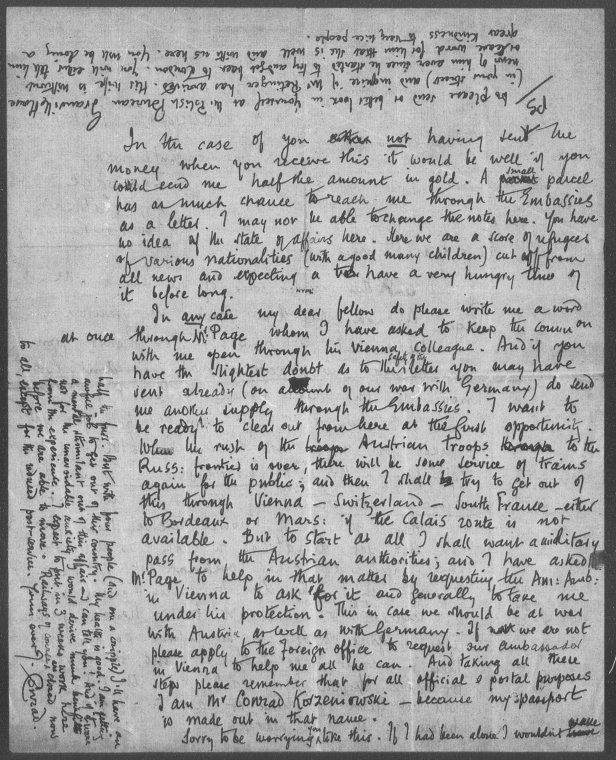 In the case of you either not having sent the
money when you receive this it would be well if you
could send me half the amount in gold. A small parcel
has as much chance to reach me through the Embassies
as a letter. I may not be able to change the notes here. You have
no idea of the state of affairs here. Here we are a score of refugees
of various nationalities (with a good many children) cut off from
all news and expecting to have a very hungry time of
it before long.
In any case my dear fellow do please write me a word
at once through Mr Page whom I have asked to keep the comm on
with me open through his Vienna colleague. And if you
have the slightest doubt as to the safety of the letter you may have
sent already (on account of our war with Germany) do send
me another supply through the Embassies. I want to
be ready to clear out from here at the first opportunity.
When the rush of the troops Austrian troops to the
Russ: frontier is over, there will be some service of trains
again for the public; and then I shall try to get out of
this through Vienna – Switzerland – South France – either
to Bordeaux or Mars: if the Calais route is not
available. But to start at all I shall want a military
pass from the Austrian authorities; and I have asked
Mr Page to help in that matter by requesting the Am: Amb:
in Vienna to ask for it and generally to take me
under his protection. This in case we should be at war
with Austria as well as with Germany. If we are not
please apply to the foreign office to request our ambassador
in Vienna to help me all he can. And taking all these
steps please remember that for all official & postal purposes
I am Mr Conrad Korzeniowski – because my passport
is made out in that name.
Sorry to be worrying you like this. If I had been alone I wouldn't
half is four. But with four people (and one crippled) I'll have an
awful job to get out of this country. My health is good. I am getting
a mental stimulant out of this affair – I can tell you! And if it were
not for the unavoidable anxiety I would derive much benefit
from the experience. I expect to put in 3 weeks work here
before we are able to move. Railways of course closed now
to all except for the reduced post-service. Yours ever J. Conrad.
PS/
Do please send or better look in yourself at the Polish Bureau Granville House
(in your street) and inquire if Mr Retinger has arrived. His wife is without
news of him ever since he started to try and get back to London. You will either tell him
or leave word for him that she is well and with us here. You will be doing a
great kindness to very nice people.